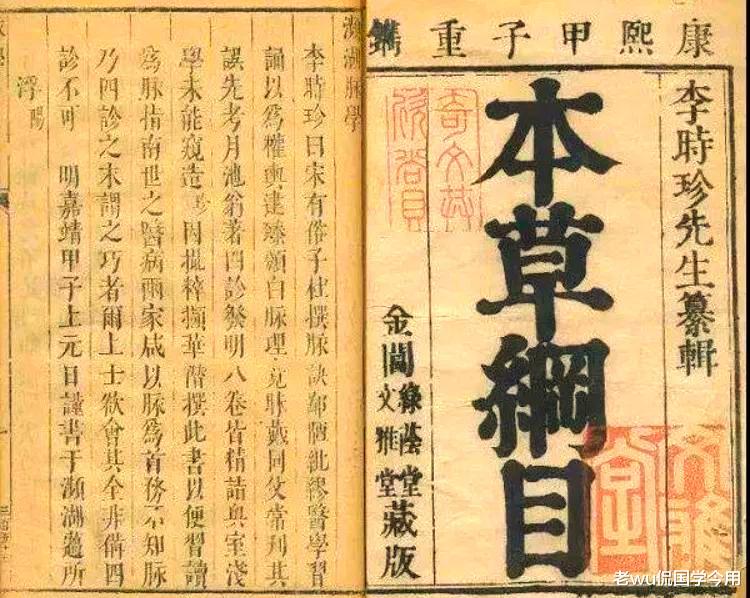 康熙甲子重鐫
李時珍先生纂輯
本草綱目
金閶
綠蔭堂
文雅堂
藏版
文雅堂
瀕湖脉學
李時珍曰宋有俗子杜撰脉訣鄙陋紕繆醫學習
誦以為權輿逮臻頒白脉理竟昧戴同父常刋其
誤先考月池翁著四診發明八卷皆精詣奧室淺
學未能窺造珍因撮粹擷華僭撰此書以便習讀
為脉指南世之醫病兩家咸以脉為首務不知脉
乃四診之末謂之巧者爾上士欲會其全非備四
診不可 明嘉靖甲子上元日謹書于瀕湖薖所
浮陽
老wu侃国学今用